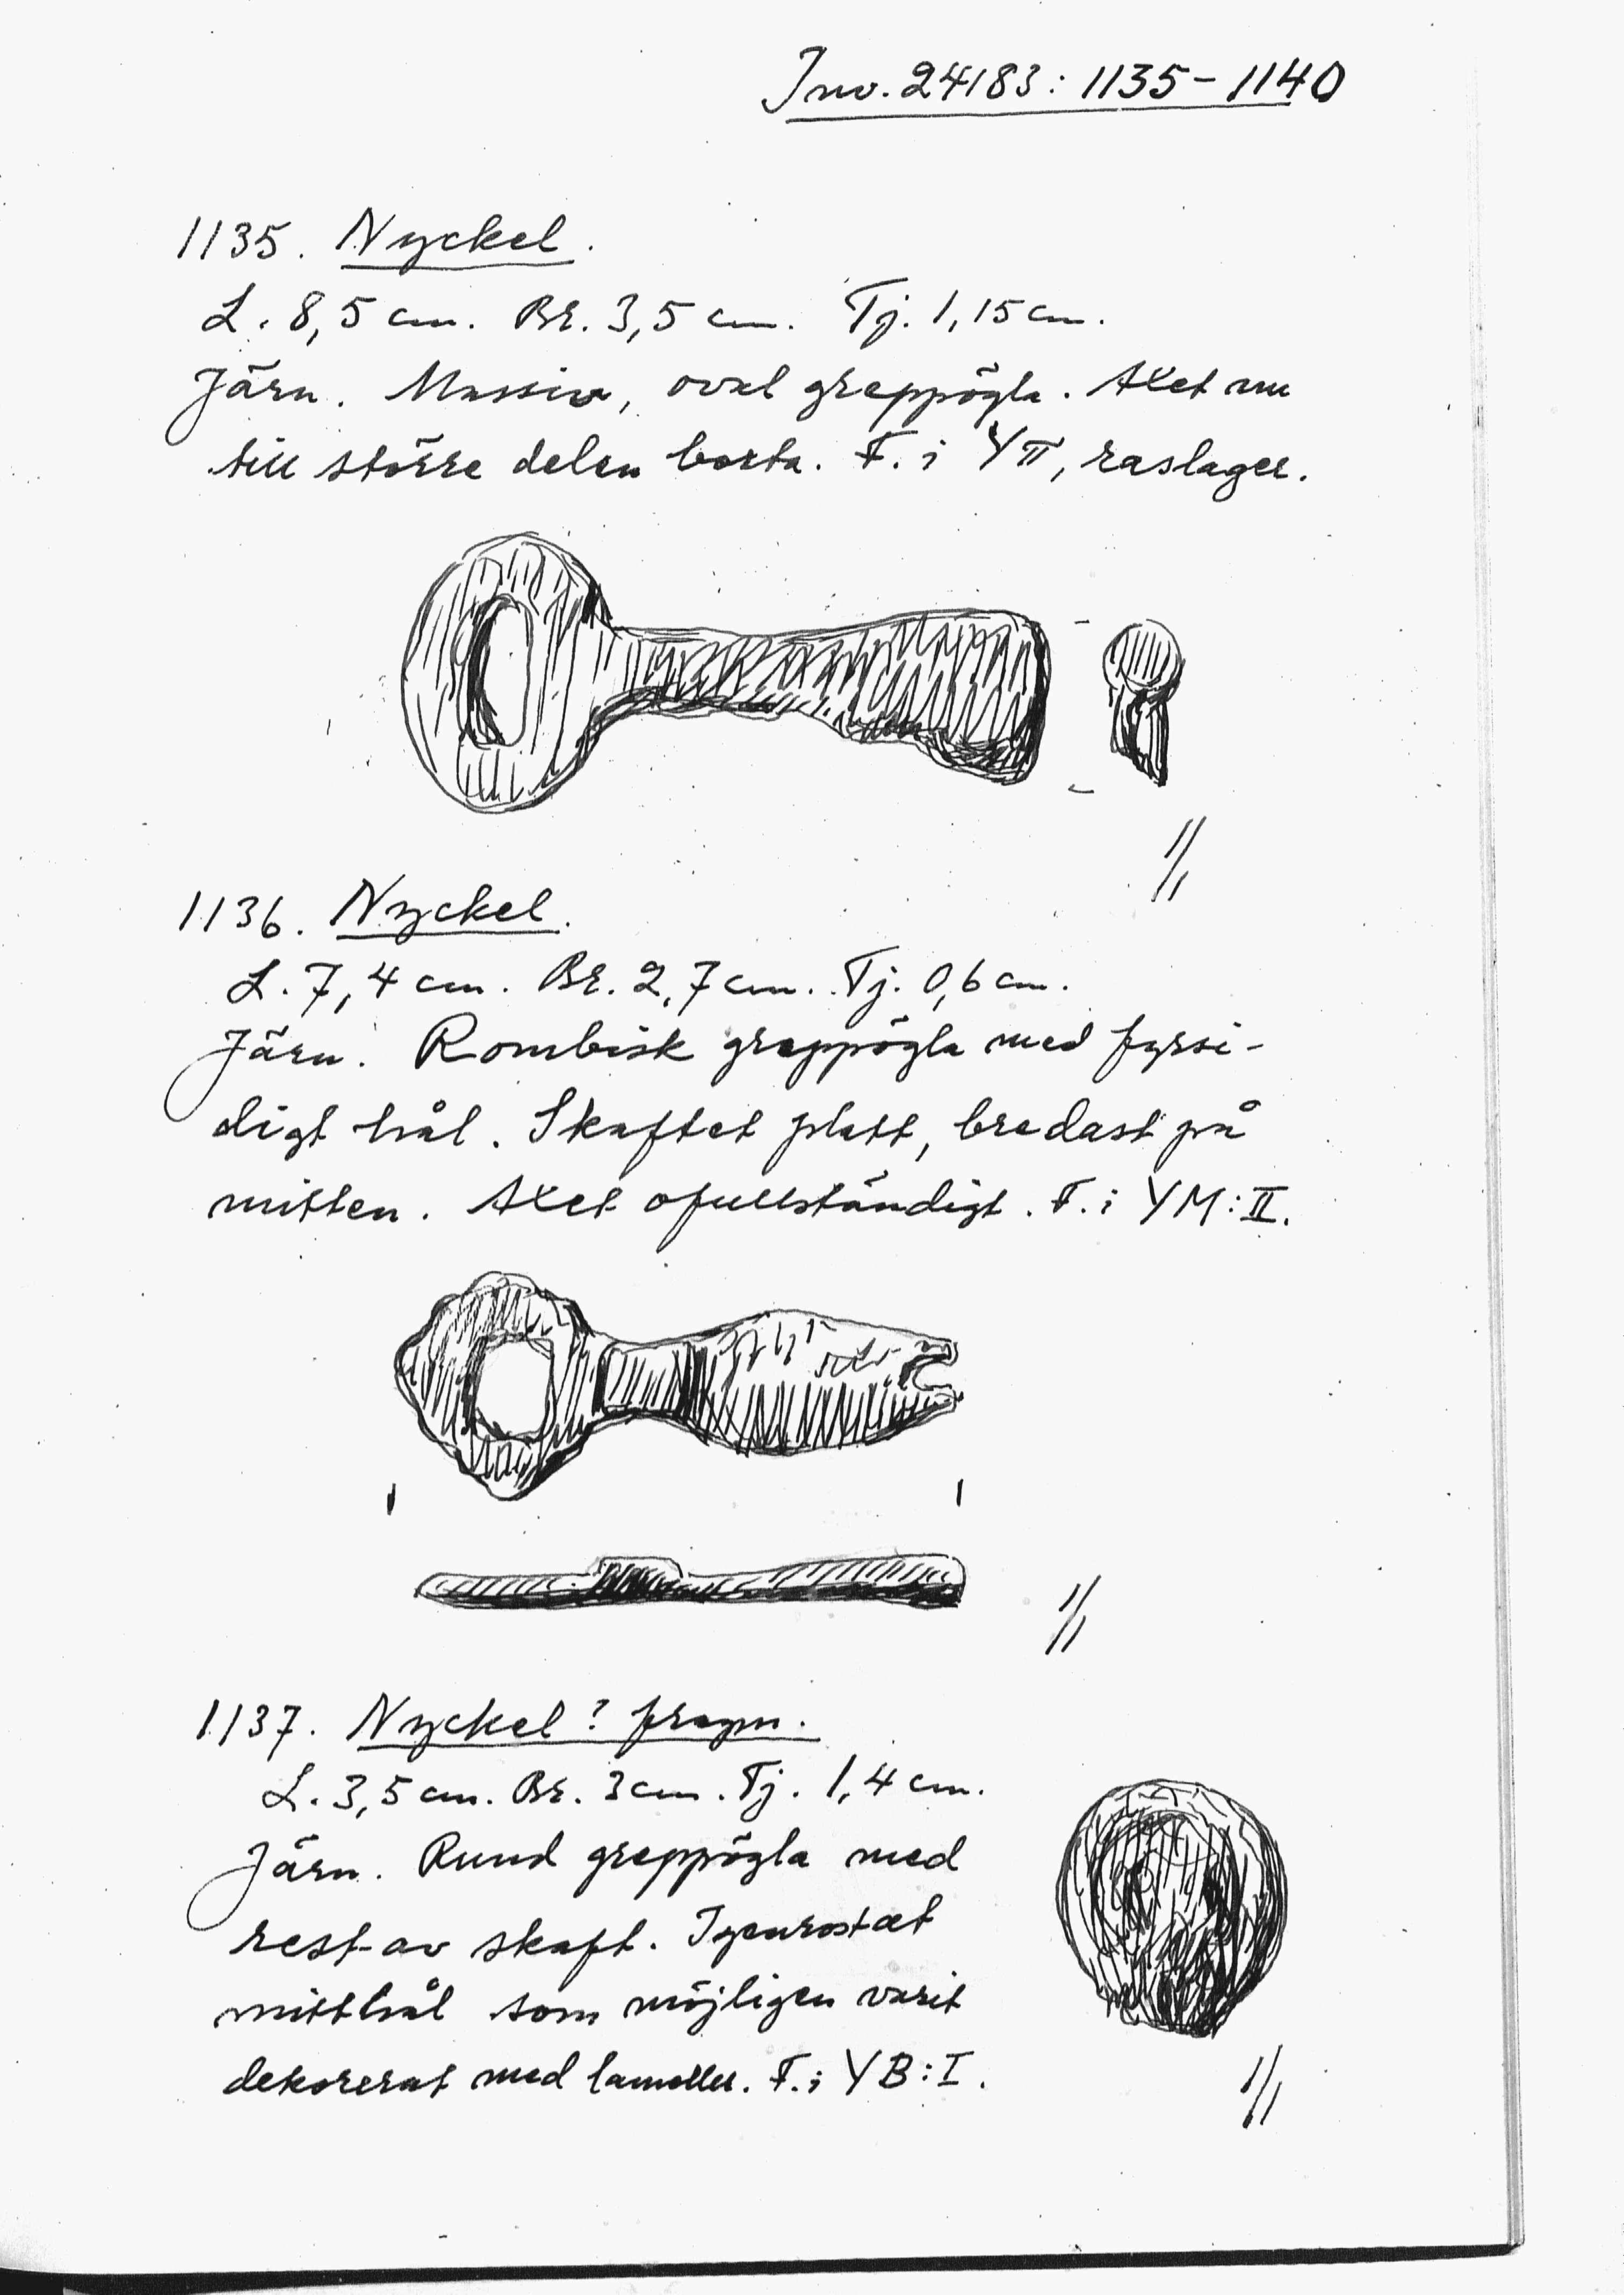 Inv. 24183: 1135-1140
1135. Nyckel.
L. 8,5 cm. Br. 3,5 cm. Tj. 1,15 cm.
Järn. Massiv, oval greppögla. Axet nu
till större delen borta. F. i YII, raslager.
1/1
1136. Nyckel.
L. 7,4 cm. Br. 2,7 cm. Tj. 0,6 cm.
Järn. Rombisk greppögla med fyrsi-
digt hål. Skaftet platt, bredast på
mitten. Axet ofullständigt. F. i YM:II.
1/1
1137. Nyckel? fragm.
L. 3,5 cm. Br. 3 cm. Tj. 1,4 cm.
Järn. Rund greppögla med
rest av skaft. Igenrostat
mitthål som möjligen varit
dekorerat med lameller. F. i YB:I.
1/1